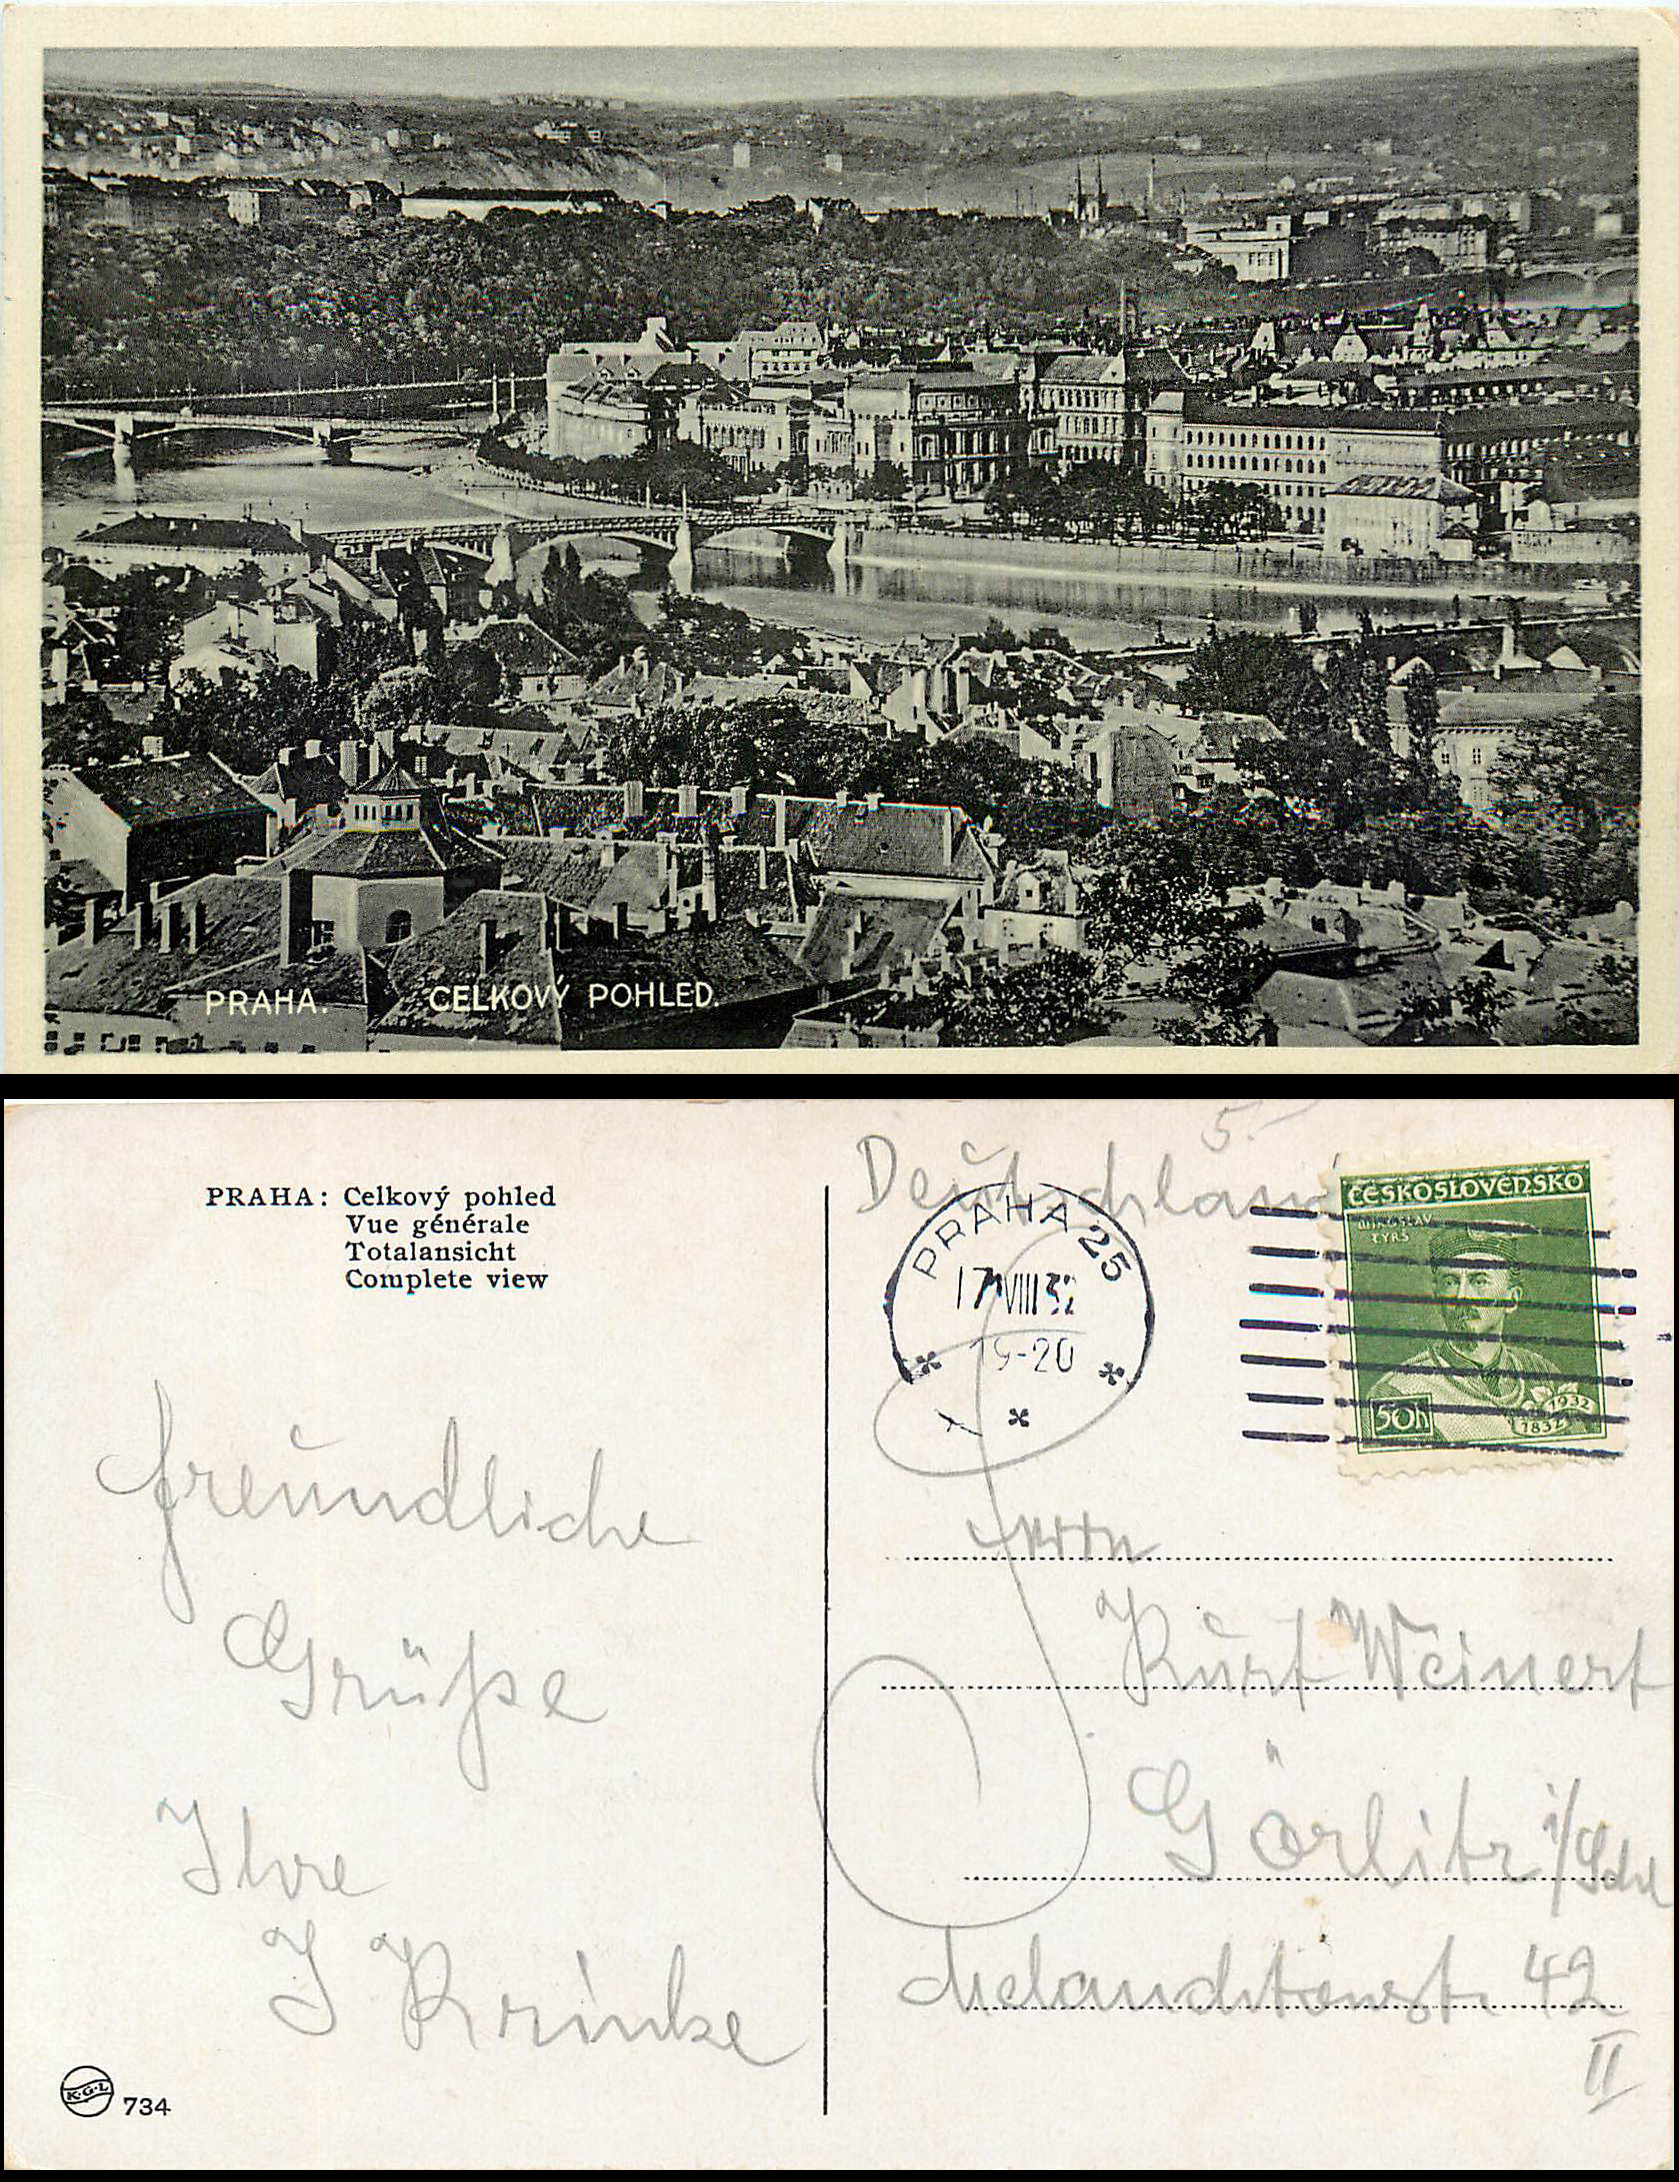 PRAHA. CELKOVÝ POHLED.
PRAHA: Celkový pohled
Vue générale
Totalansicht
Complete view
5.-
Deutschland
PRAHA 25
17 VIII 32
19-20
ČESKOSLOVENSKO
MIROSLAV
TYRŠ
50h
1932
1832
freundliche
Grüße
Ihre
J Krinke
Herrn
Kurt Weinert
Görlitz i/Schl
Melanchtonstr 42
II
K·G·L
734